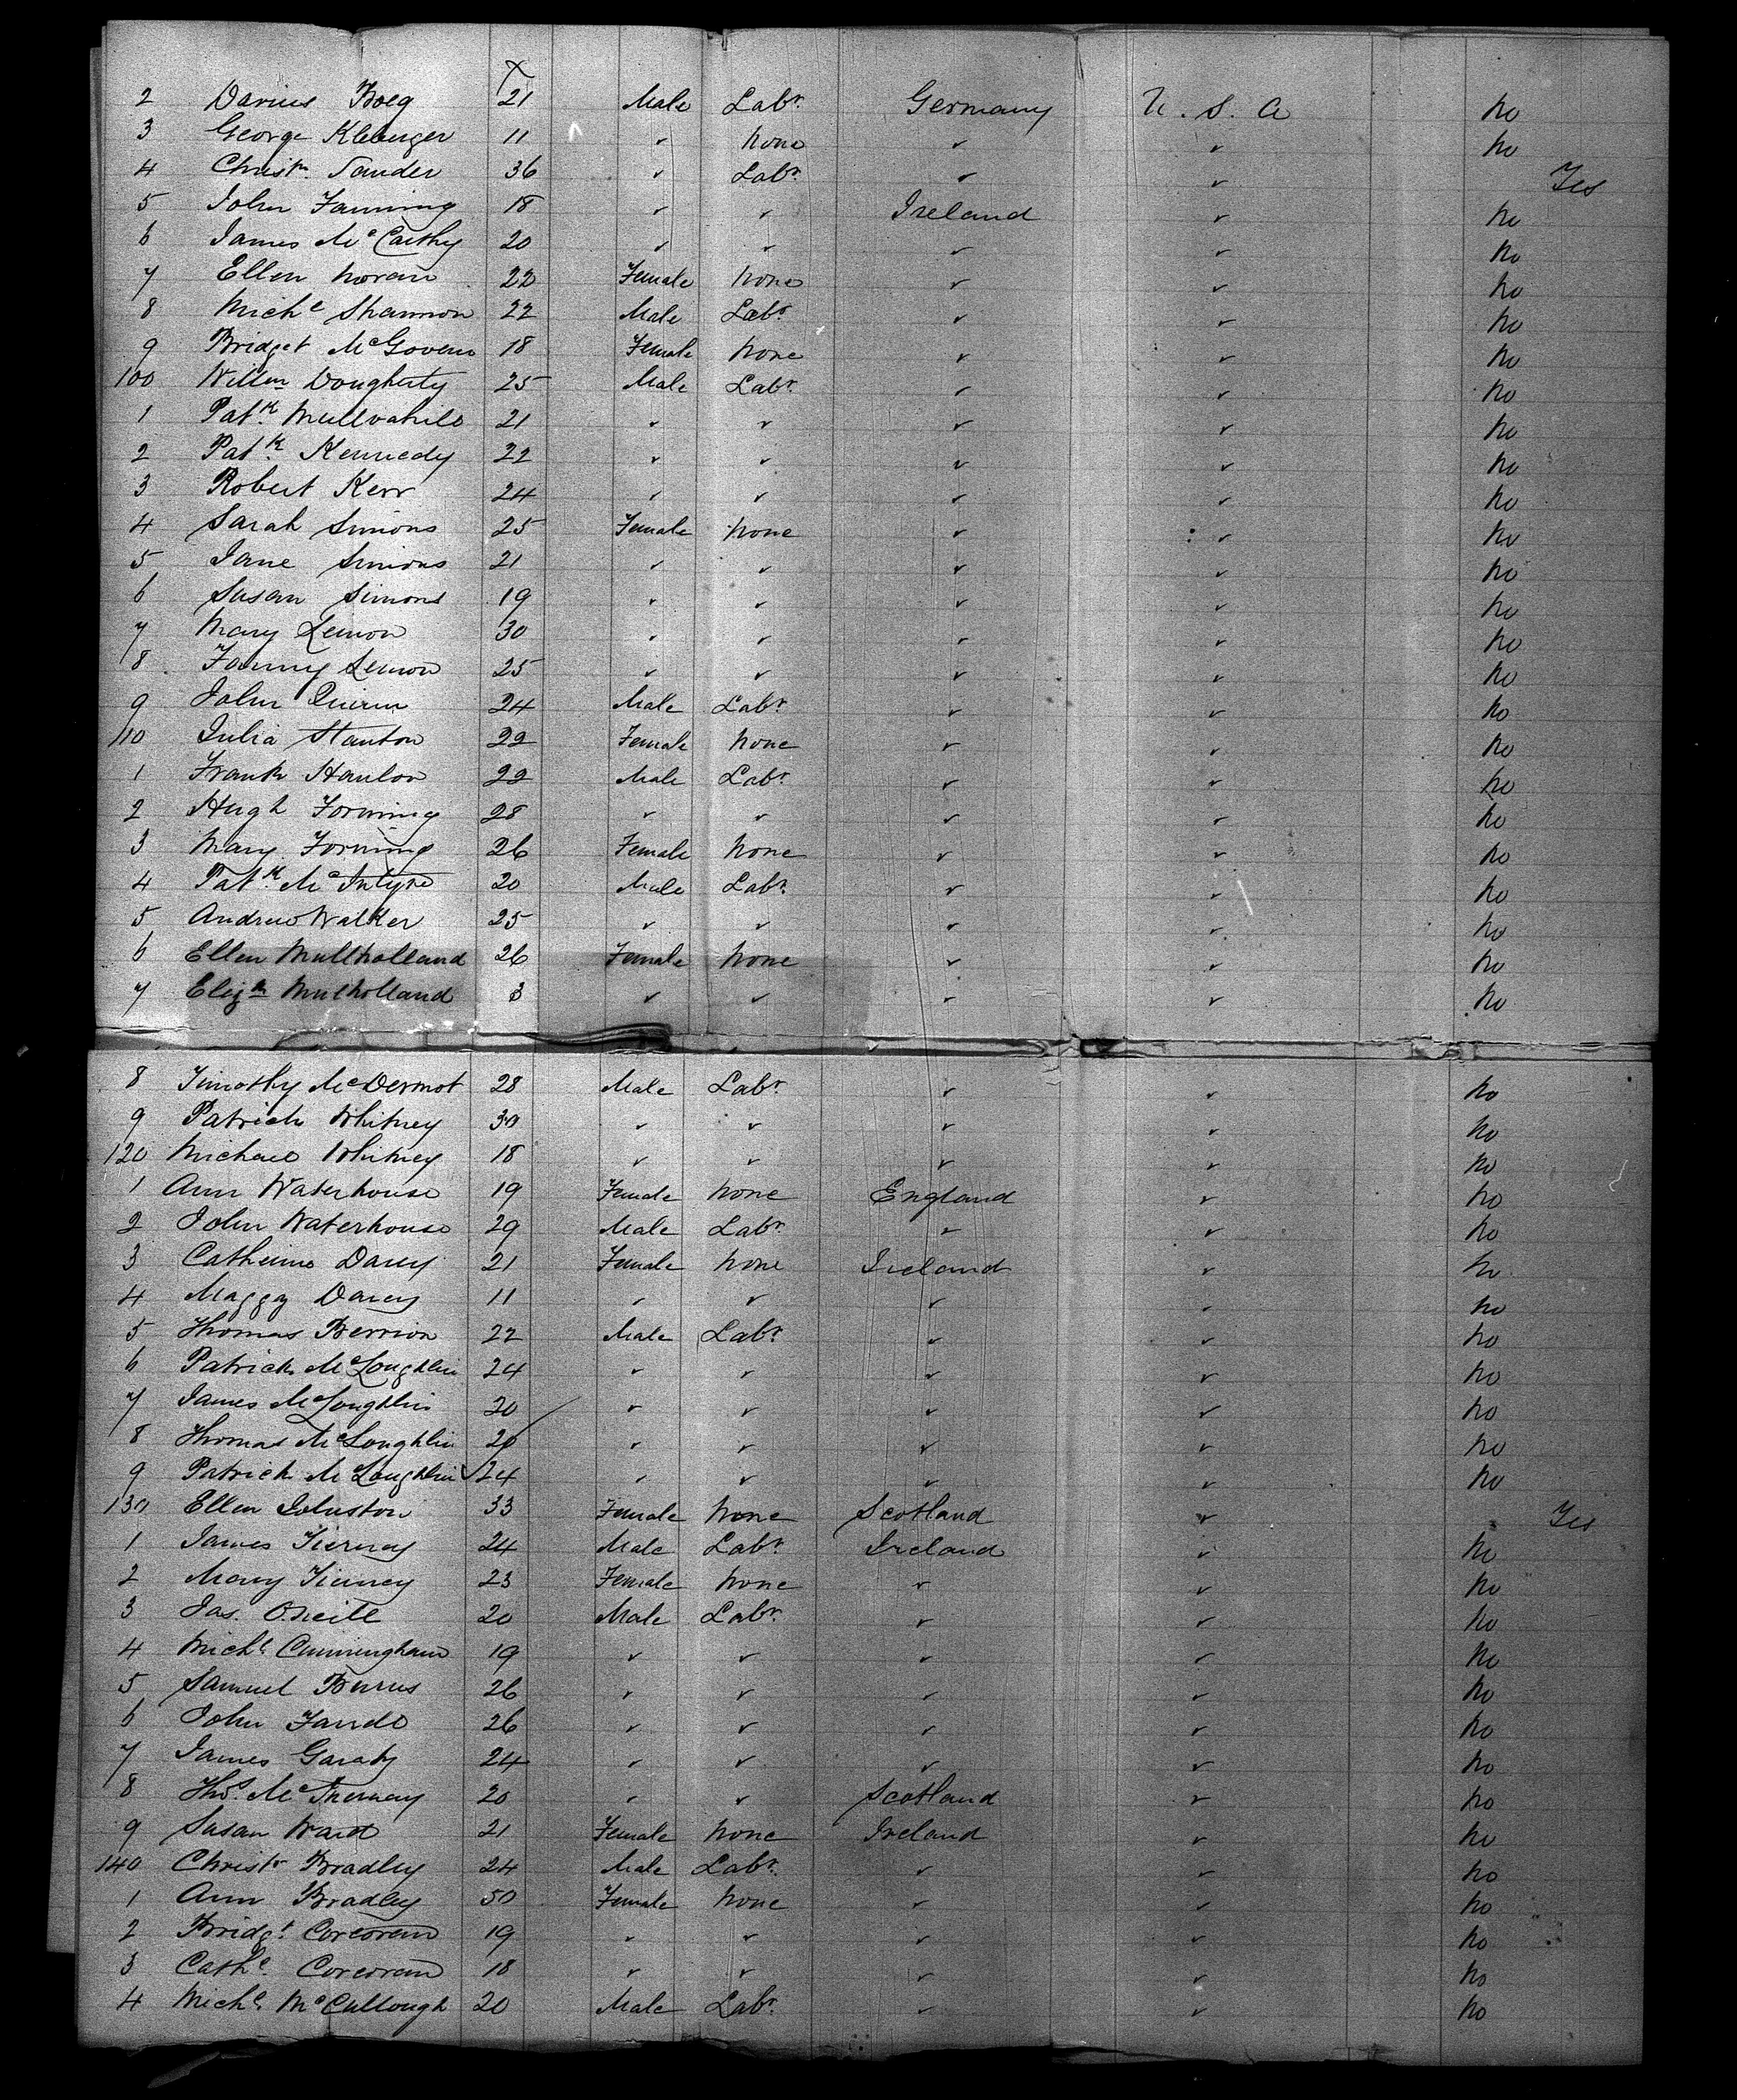 2 Darius Boeg 21 Male Labr. Germany U. S. A No
3 George 11 ✓ None ✓ ✓ No
4 Christn. Sander 36 ✓ Labr. ✓ ✓ Yes
5 John Fanning 18 ✓ ✓ Ireland ✓ No
6 James McCarthy 20 ✓ ✓ ✓ ✓ No
7 Ellen Moran 22 Female None ✓ ✓ No
8 Michl Shannon 22 Male Labr ✓ ✓ No
9 Bridget McGovern 18 Female None ✓ ✓ No
100 Willm Dougherty 25 Male Labr ✓ ✓ No
1 Patk. 21 ✓ ✓ ✓ ✓ No
2 Patk. Kennedy 22 ✓ ✓ ✓ ✓ No
3 Robert Kerr 24 ✓ ✓ ✓ ✓ No
4 Sarah Simons 25 Female None ✓ ✓ No
5 Jane Simons 21 ✓ ✓ ✓ ✓ No
6 Susan Simons 19 ✓ ✓ ✓ ✓ No
7 Mary Lemon 30 ✓ ✓ ✓ ✓ No
8 Fanny Lemon 25 ✓ ✓ ✓ ✓ No
9 John 24 Male Labr ✓ ✓ No
110 Julia Stanton 22 Female None ✓ ✓ No
1 Frank Hanlon 22 Male Labr ✓ ✓ No
2 Hugh Forming 28 ✓ ✓ ✓ ✓ No
3 Mary Forming 26 Female None ✓ ✓ No
4 Patk. McIntyre 20 Male Labr. ✓ ✓ No
5 Andrew Walker 25 ✓ ✓ ✓ ✓ No
6 Ellen Mullholland 26 Female None ✓ ✓ No
7 Elizh Mulholland 3 ✓ ✓ ✓ ✓ No
8 Timothy McDermot 28 Male Labr. ✓ ✓ No
9 Patrick Whitney 30 ✓ ✓ ✓ ✓ No
120 Michael Whitney 18 ✓ ✓ ✓ ✓ No
1 Ann Waterhouse 19 Female None England ✓ No
2 John Waterhouse 29 Male Labr. ✓ ✓ No
3 Catherine Darcy 21 Female None Ireland ✓ No
4 Maggy Darcy 11 ✓ ✓ ✓ ✓ No
5 Thomas Berrion 22 Male Labr. ✓ ✓ No
6 Patrick McLoughlin 24 ✓ ✓ ✓ ✓ No
7 James McLoughlin 20 ✓ ✓ ✓ ✓ No
8 Thomas McLoughlin 20 ✓ ✓ ✓ ✓ No
9 Patrick McLoughlin ✓ 24 ✓ ✓ ✓ ✓ No
130 Ellen Johnston 33 Female None Scotland ✓ Yes
1 James Tierney 24 Male Labr. Ireland ✓ No
2 Mary Tierney 23 Female None ✓ ✓ No
3 Jas. O.Neill 20 Male Labr. ✓ ✓ No
4 Michl. Cunningham 19 ✓ ✓ ✓ ✓ No
5 Samuel Burns 26 ✓ ✓ ✓ ✓ No
6 John 26 ✓ ✓ ✓ ✓ No
7 James Garaty 24 ✓ ✓ ✓ ✓ No
8 Thos. 20 ✓ ✓ Scotland ✓ No
9 Susan Ward 21 Female None Ireland ✓ No
140 Christr Bradley 24 Male Labr. ✓ ✓ No
1 Ann Bradley 50 Female None ✓ ✓ No
2 Bridgt. Corcoran 19 ✓ ✓ ✓ ✓ No
3 Cathe. Corcoran 18 ✓ ✓ ✓ ✓ No
4 Michl. McCullough 20 Male Labr. ✓ ✓ No